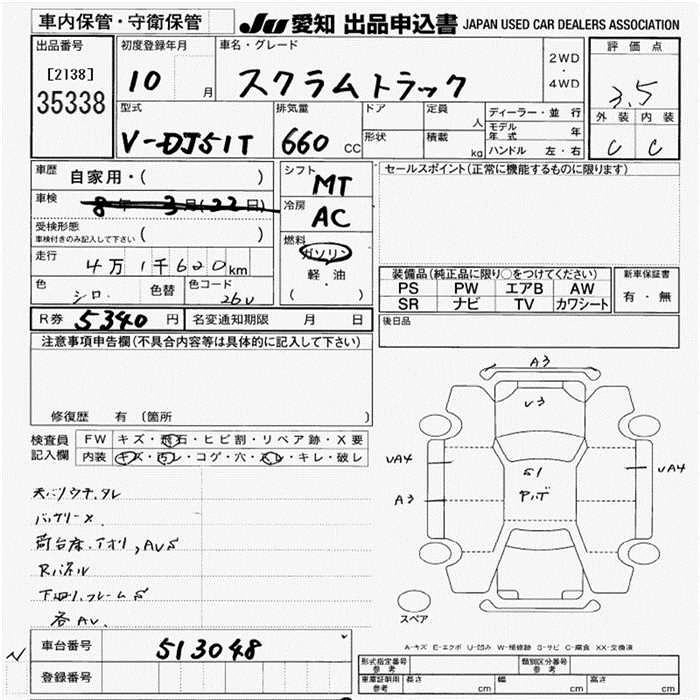 車内保管・守衛保管
JU 愛知 出品申込書 JAPAN USED CAR DEALERS ASSOCIATION
出品番号
[2138]
35338
初度登録年月
10 月
車名・グレード
スクラムトラック
2WD
・
4WD
評価点
3.5
外装 内装
C C
型式
V-DJ51T
排気量
660 CC
ドア
形状
定員
人
積載
kg
ディーラー・並行
モデル年式 年
ハンドル 左・右
車歴
自家用・( )
車検
8年 3月(22日)
受検形態
車検付きのみ記入して下さい ( )
走行
4万1千600km
色
シロ
色替
色コード
26U
シフト
MT
冷房
AC
燃料
ガソリン
軽・油
( ・ )
セールスポイント(正常に機能するものに限ります)
装備品(純正品に限り○をつけてください)
PS PW エアB AW
SR ナビ TV カワシート
新車保証書
有・無
R券 5340 円
名変通知期限 月 日
後日品
注意事項申告欄(不具合内容等は具体的に記入して下さい)
修復歴 有 (箇所 )
検査員記入欄
FW キズ・飛石・ヒビ割・リペア跡・X要
内装 キズ・汚レ・コゲ・穴・スレ・キレ・破レ
バッテリーX
荷台床
Rパネル
各AU
A3
U3
UA4
A3
S1
UA4
スペア
A-キズ E-エクボ U-凹み W-補修跡 S-サビ C-腐食 XX-交換済
車台番号
513048
登録番号
形式指定番号
参考
類別区分番号
参考
車庫証明用
参考
長さ cm
幅 cm
高さ cm